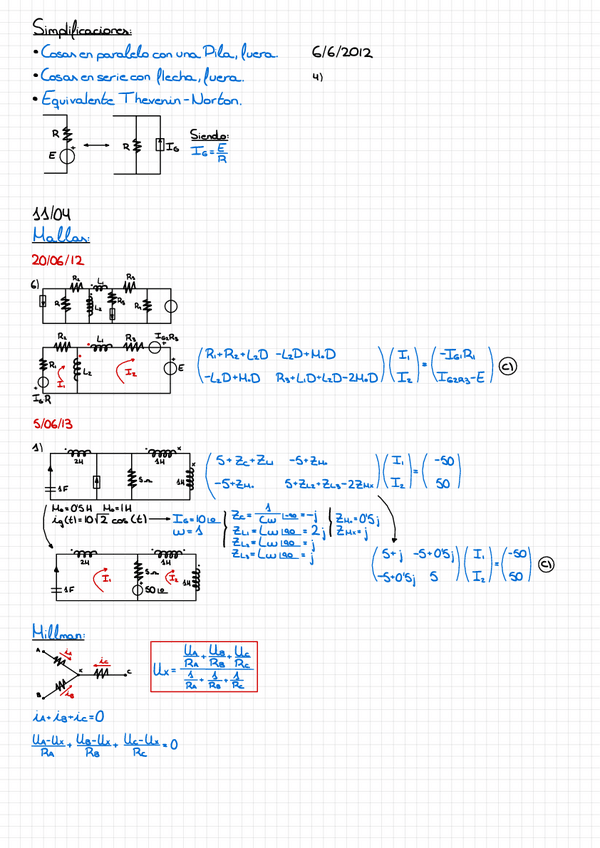 Simplificaciones:
• Cosas en paralelo con una Pila, fuera.
6/6/2012
• Cosas en serie con flecha, fuera.
4)
• Equivalente Thevenin-Norton.
R
E
+
R
IG
Siendo:
IG = E/R
11/04
Mallas:
20/06/12
6)
R2 L1 R3
R1 L2 R3 R4
R2 L1 R3 IG2R3
R1 I1 L2 I2 E
IGR
(R1+R2+L2D -L2D+M0D) (I1) = (-IG1R1)
(-L2D+M0D R3+L1D+L2D-2M0D) (I2) = (IG2R3-E)
c)
5/06/13
1)
2H 1H
1F 5Ω 1H
(5+ZC+ZL1 -5+ZM0) (I1) = (-50)
(-5+ZM0 5+ZL2+ZL3-2ZMx) (I2) = (50)
M0=0'5H Mx=1H
ig(t)=10√2 cos(t) → IG=10∠0
ω=1
ZC = 1/Cω ∠-90 = -j
ZL1 = Lω∠90 = 2j
ZL2 = Lω∠90 = j
ZL3 = Lω∠90 = j
ZM0=0'5j
ZMx=j
2H 1H
1F I1 5Ω I2 1H
50∠0
(5+j -5+0'5j) (I1) = (-50)
(-5+0'5j 5) (I2) = (50)
c)
Millman:
A iA
iC
X C
B iB
Ux = (UA/RA + UB/RB + UC/RC) / (1/RA + 1/RB + 1/RC)
iA+iB+iC=0
(UA-Ux)/RA + (UB-Ux)/RB + (UC-Ux)/RC = 0